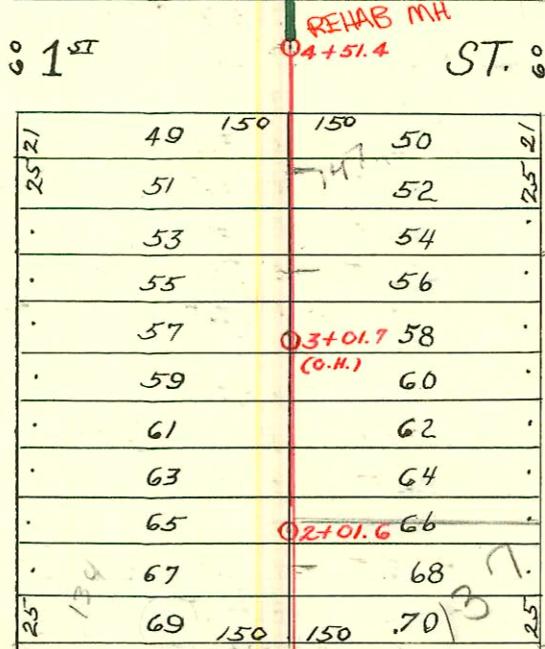 REHAB MH
60 1ST 4+51.4 ST. 60
21 49 150 150 50 21
25 51 147 52 25
53 54
55 56
57 3+01.7 58
(O.H.)
59 60
61 62
63 64
65 2+01.6 66
67 68
134 137
25 69 150 150 70 25